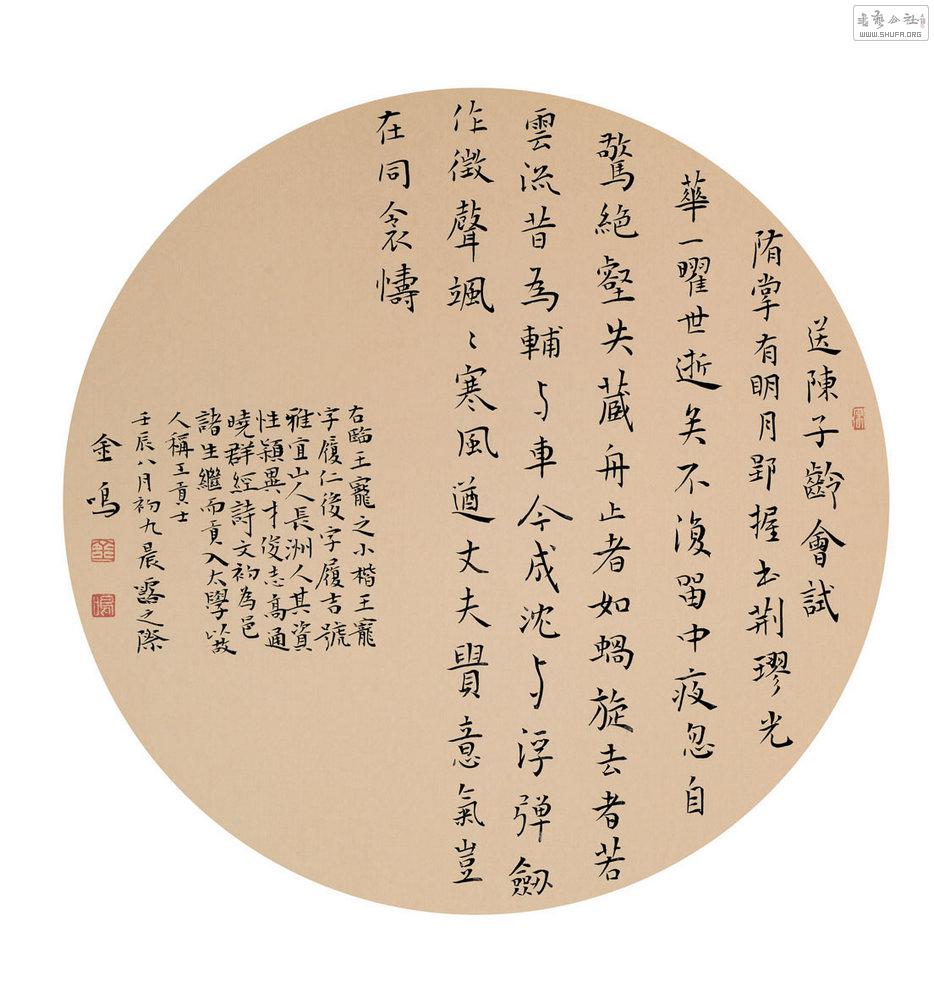 送陳子齡會試
隋掌有明月郢握出荆璆光
華一曜世逝矣不復留中夜忽自
驚絶壑失蔵舟止者如蝸旋去者若
雲流昔為輔与車今成沈与浮弾劔
作徴聲颯〻寒風遒丈夫貴意氣豈
在同衾幬
右臨王寵之小楷王寵
字履仁後字履吉號
雅宜山人長洲人其資
性穎異才俊志高通
曉群經詩文初為邑
諸生繼而貢入太學故
人稱王貢士
壬辰八月初九晨露之際
金鳴
WWW.SHUFA.ORG